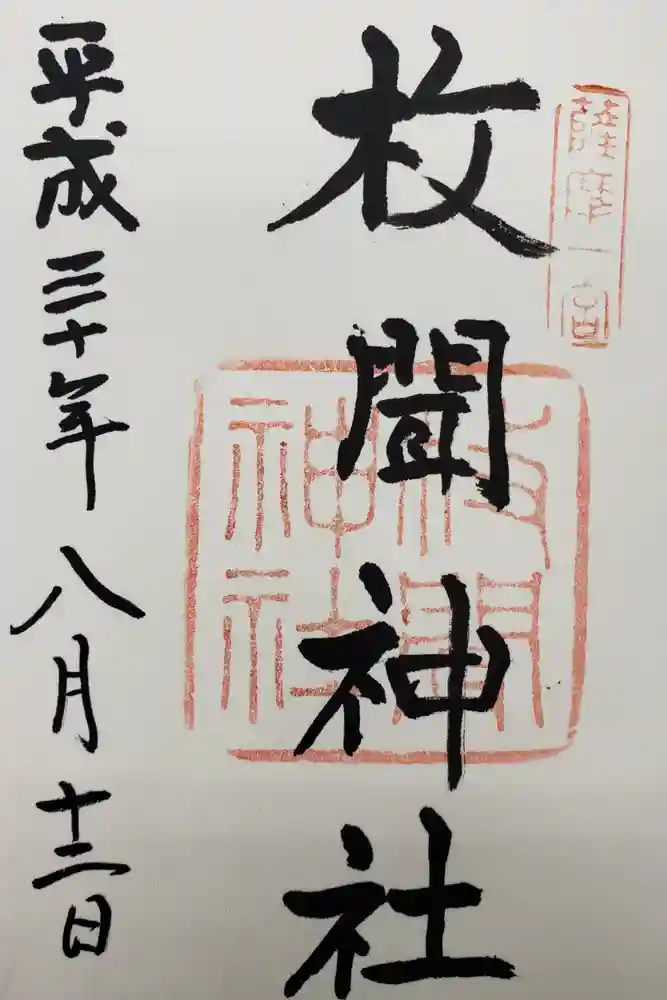 薩摩一宮
枚聞神社
枚聞
神社
平成三十年八月十二日